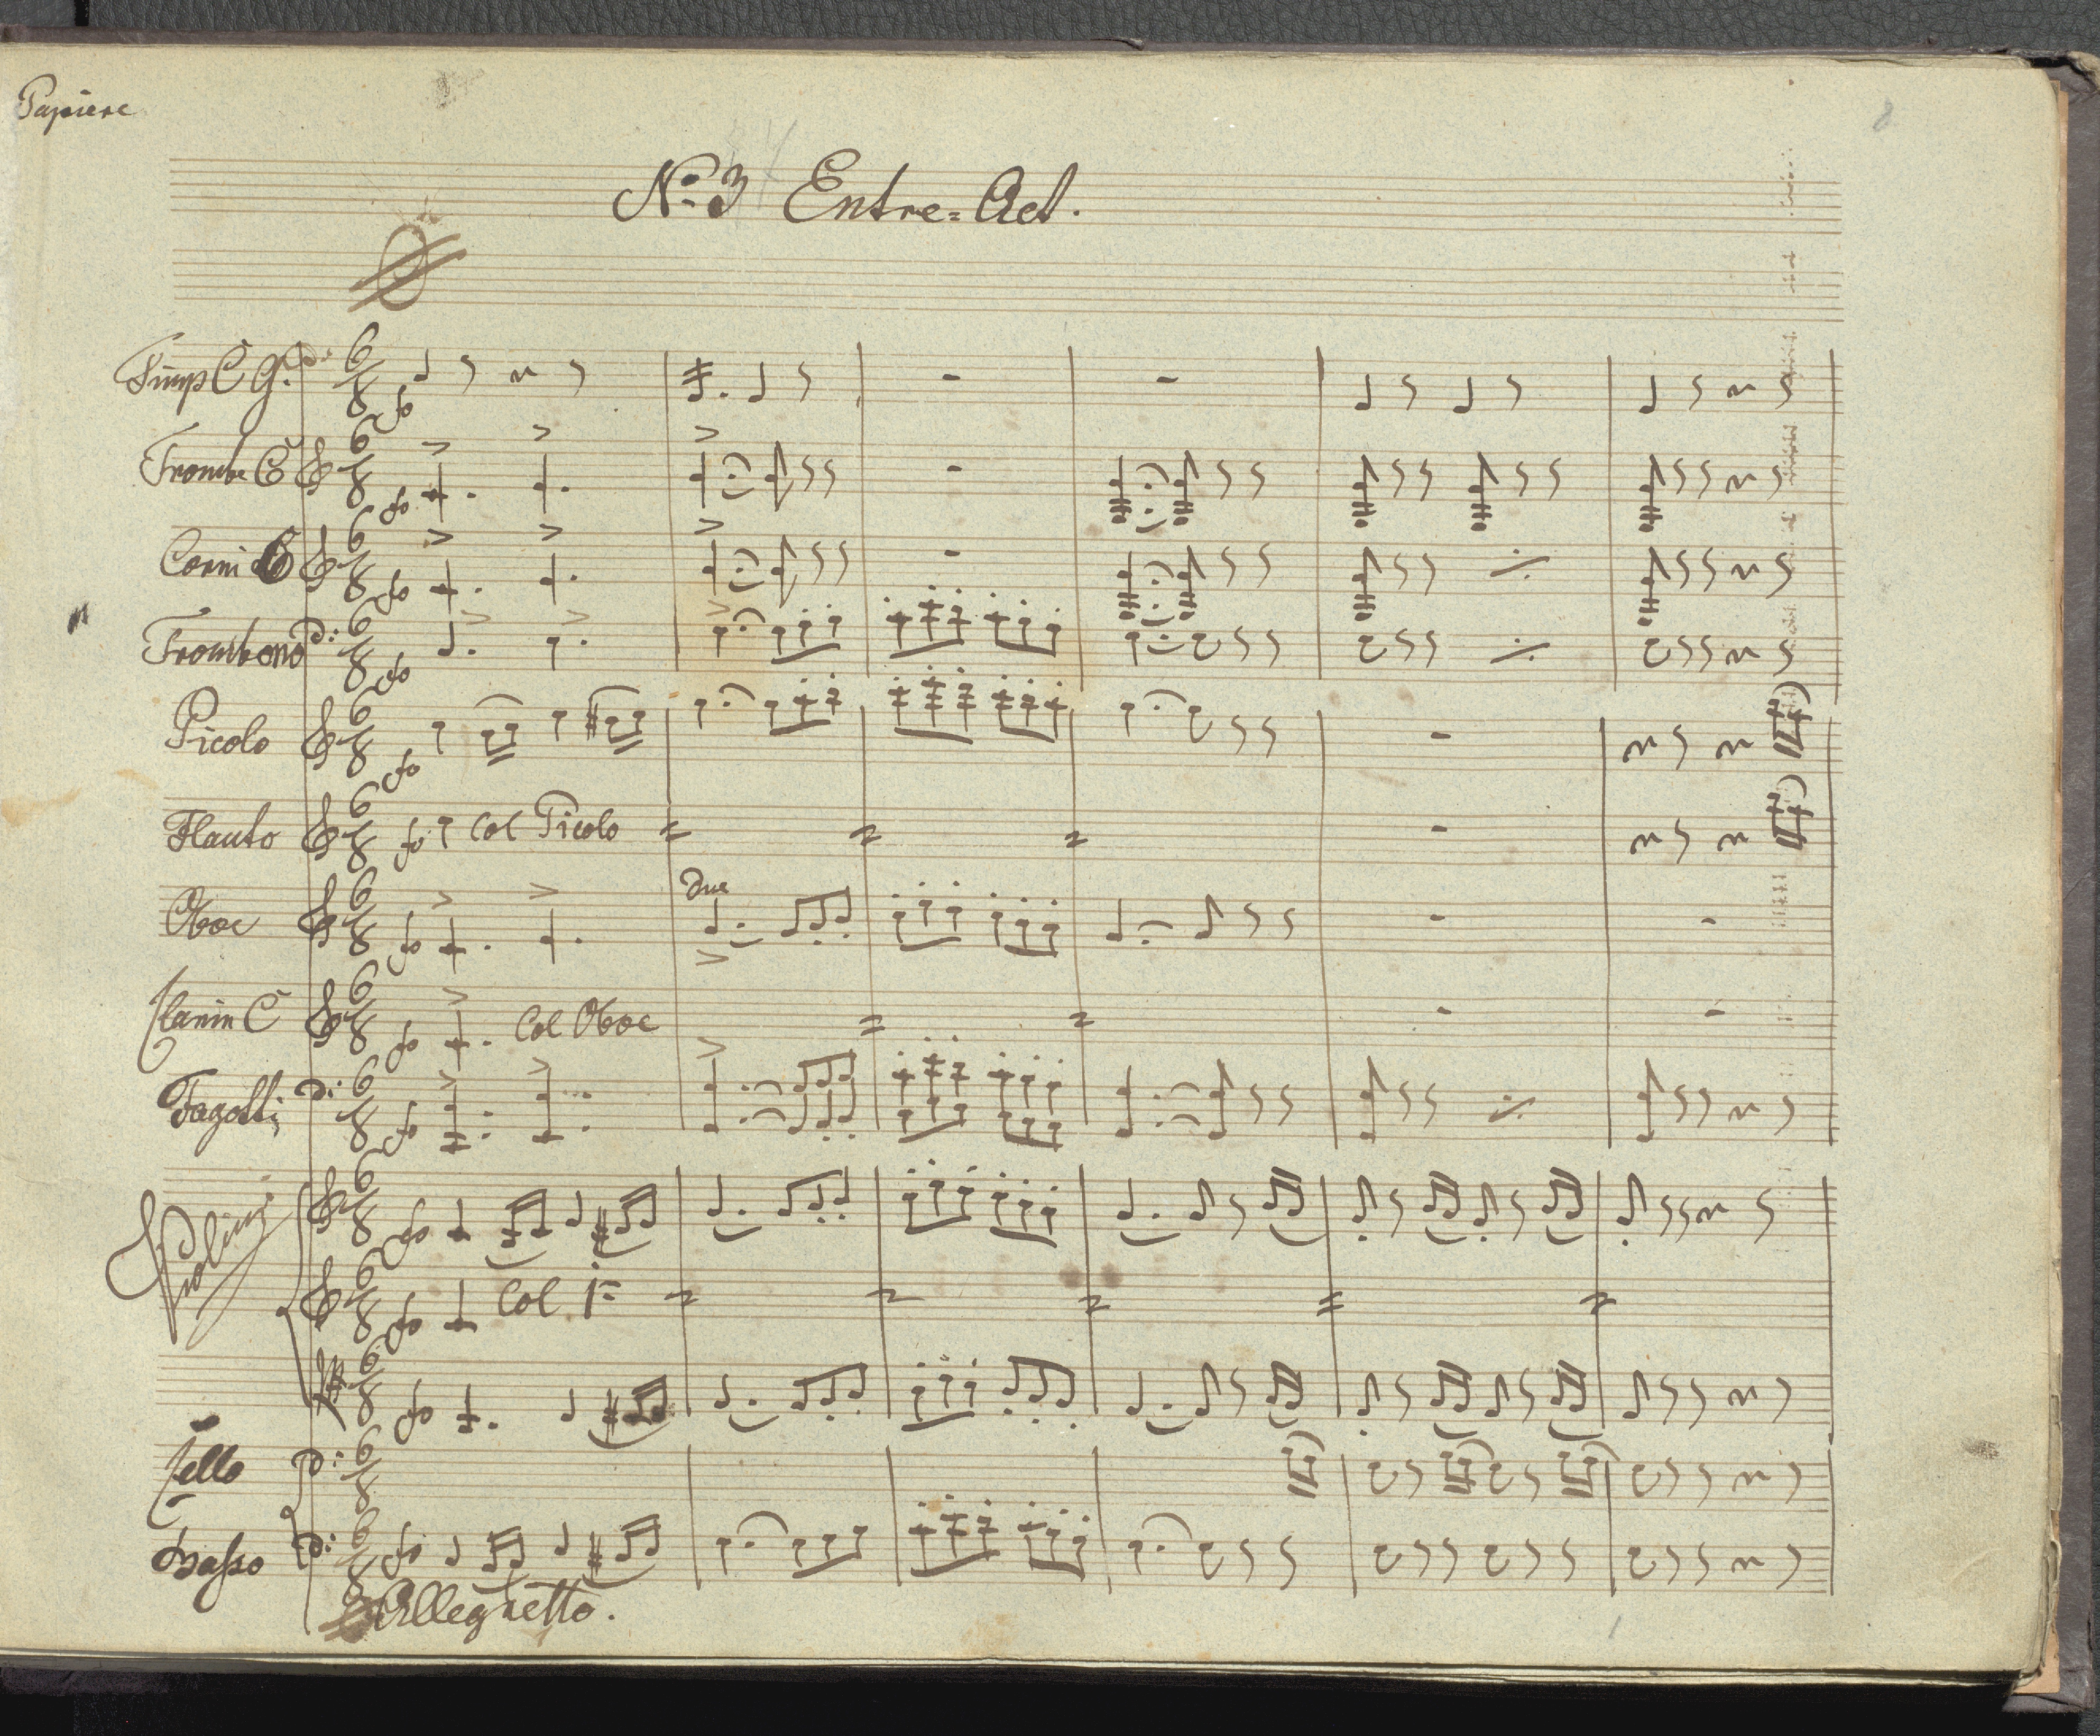 Papiere
8
No. 3 Entre=Act.
Timp C G.
fo
Trombe C
fo
Corni C
fo
Trombono
fo
Picolo
fo
Flauto
fo
Col Picolo
Oboe
fo
Due
Clarin C
fo
Col Oboe
Fagotti
fo
Violini
fo
fo
Col 1=
fo
Cello
Basso
fo
Alleghetto.